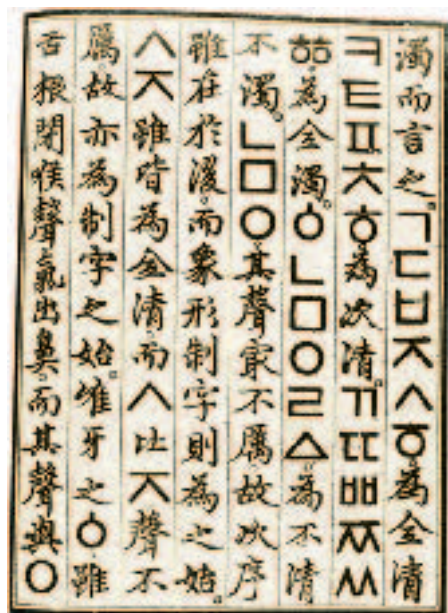 濁而言之。ㄱㄷㅂㅈㅅㆆ。為全清
ㅋㅌㅍㅊㅎ。為次清。ㄲㄸㅃㅉㅆ
ㆅ。為全濁。ㆁㄴㅁㅇㄹㅿ。為不清
不濁。ㄴㅁㅇ。其聲㝡不厲。故次序
雖在於後。而象形制字則為之始。
ㅅㅈ雖皆為全清。而ㅅ比ㅈ聲不
厲。故亦為制字之始。唯牙之ㆁ。雖
舌根閉喉聲氣出鼻。而其聲與ㅇ